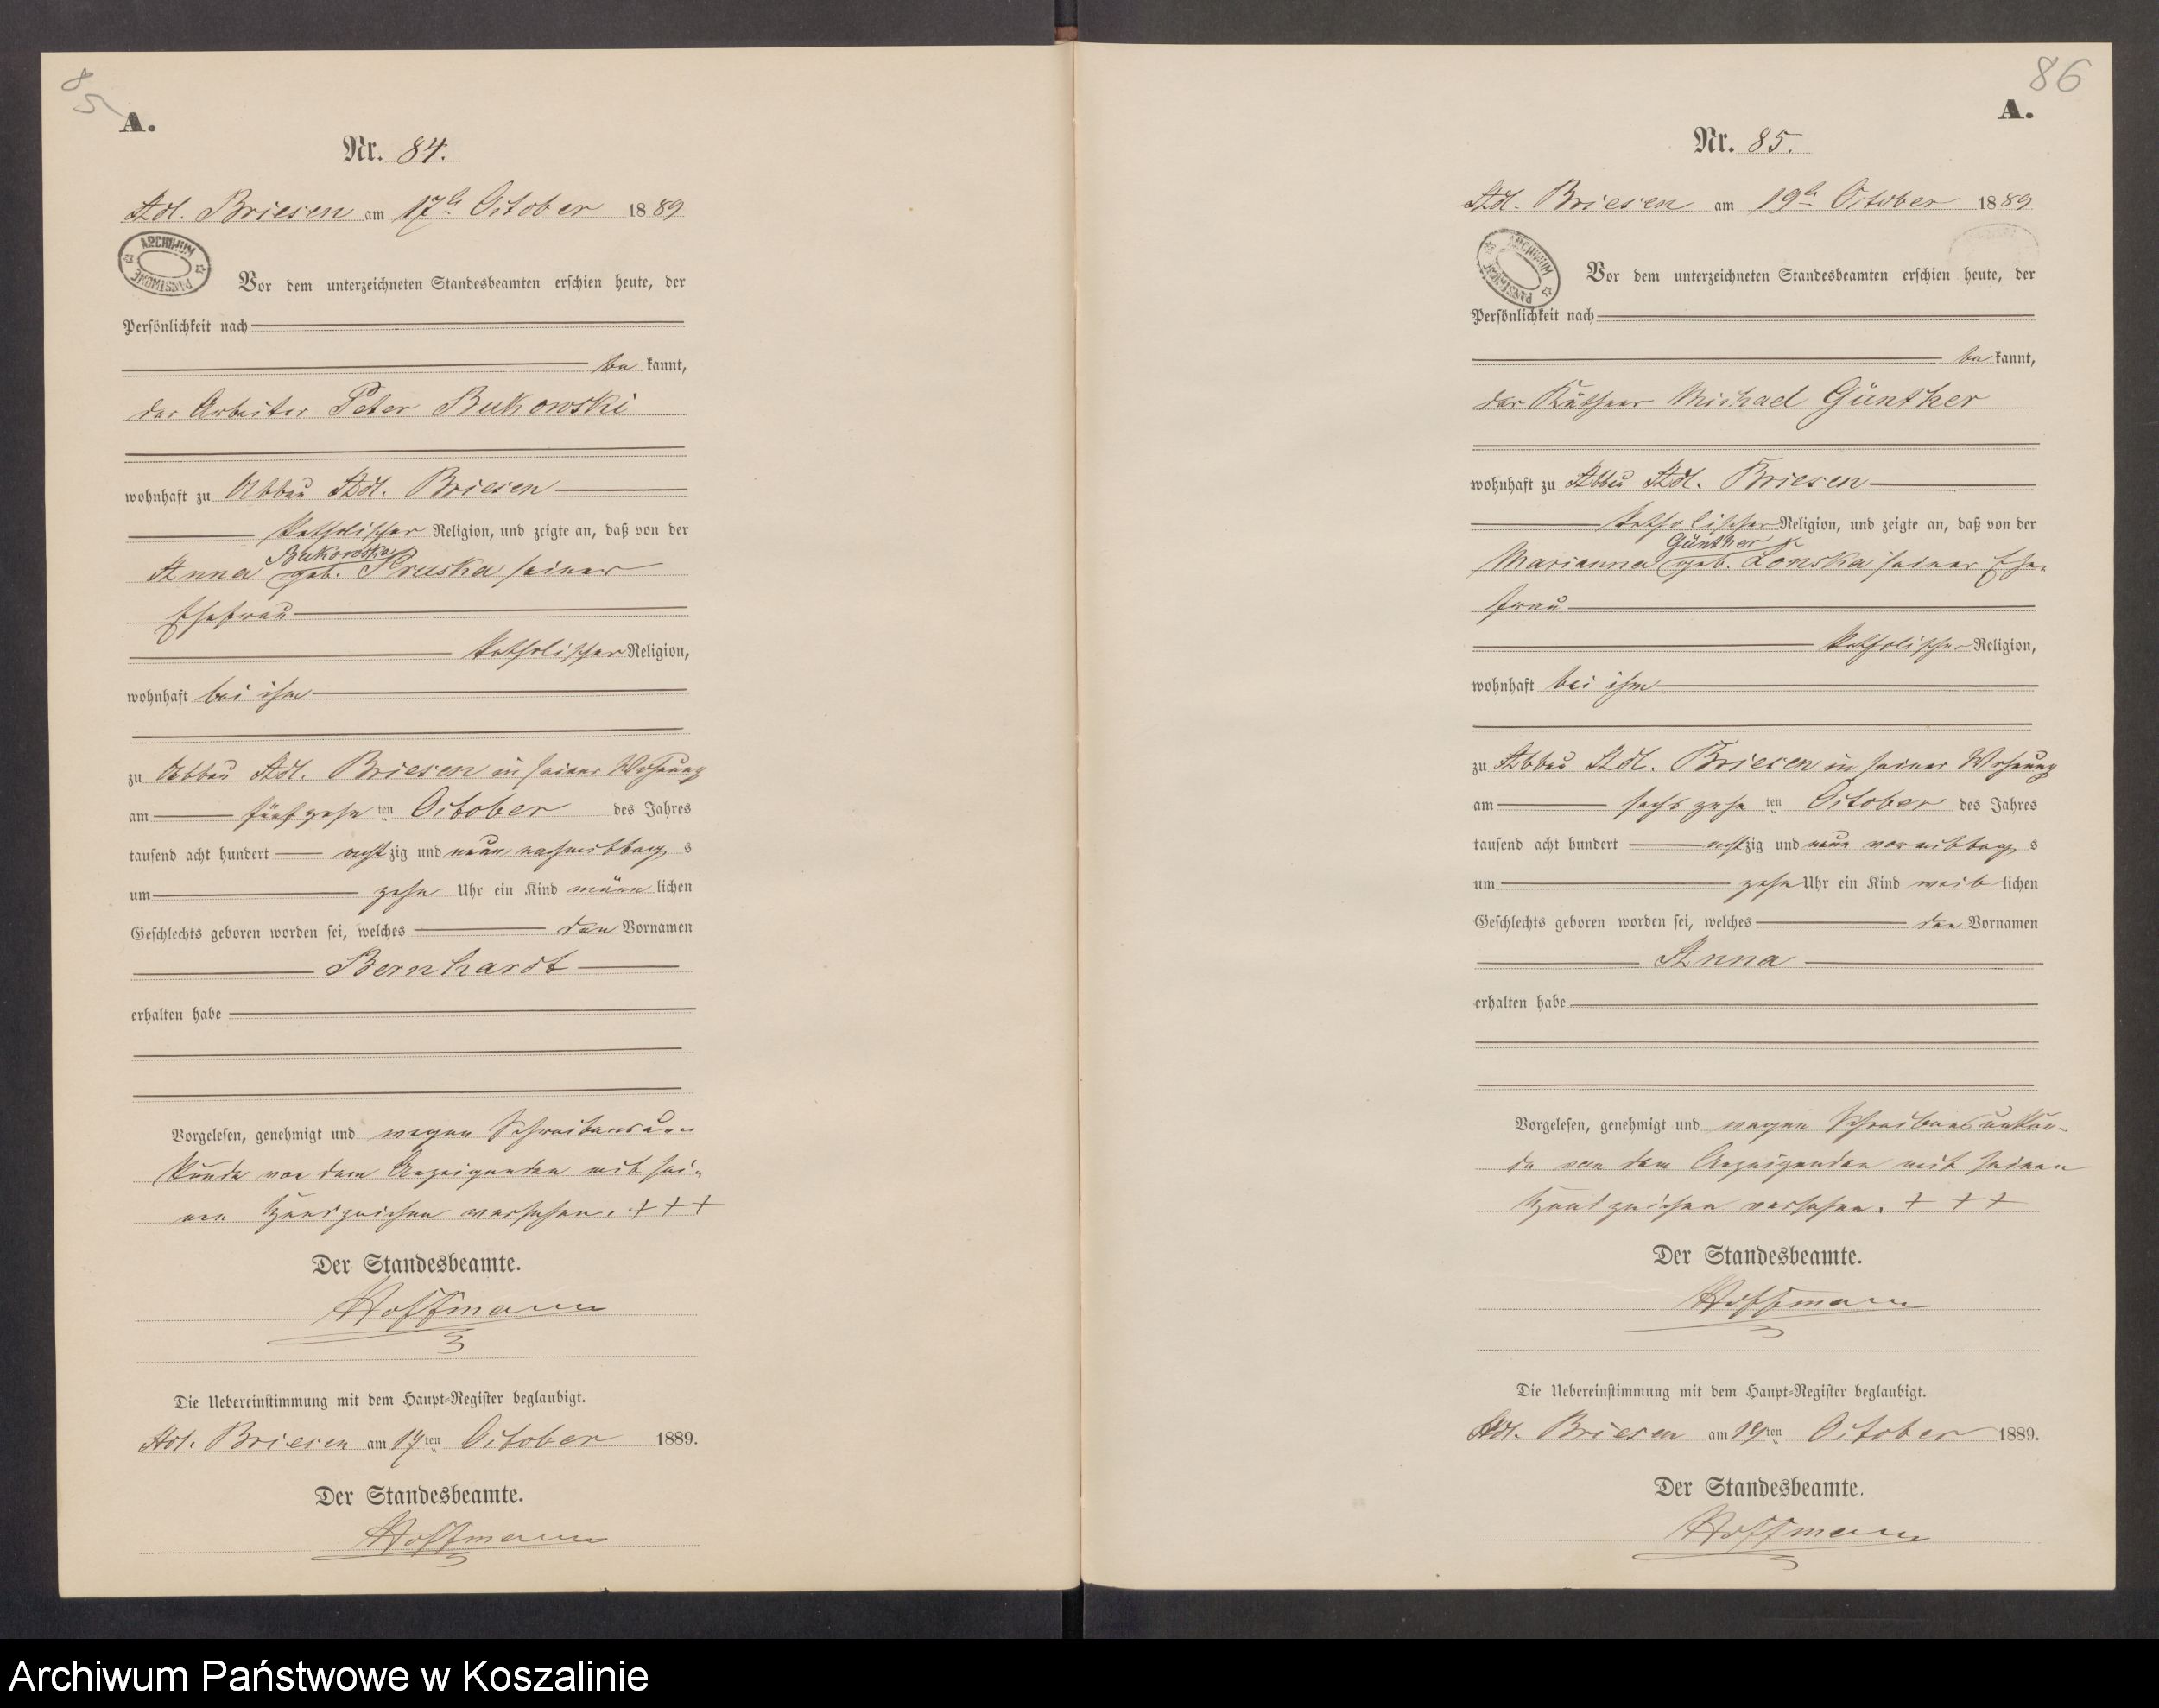 85
A.
Nr. 84.
Adl. Briesen am 17th October 1889
ARCHIWUM
PAŃSTWOWE
Vor dem unterzeichneten Standesbeamten erschien heute, der
Persönlichkeit nach
be kannt,
der Arbeiter Peter Bukowski
wohnhaft zu Abbau Adl. Briesen
katholischer Religion, und zeigte an, daß von der
Bukowska
Anna geb. Pruska seiner
Ehefrau
katholischer Religion,
wohnhaft bei ihm
zu Abbau Adl. Briesen in seiner Wohnung
am fünfzehn ten October des Jahres
tausend acht hundert acht zig und neun nachmittag s
um zehn Uhr ein Kind männ lichen
Geschlechts geboren worden sei, welches den Vornamen
Bernhardt
erhalten habe
Vorgelesen, genehmigt und wegen Schreibensun-
kunde von dem Anzeigenden mit sei-
nen Handzeichen versehen. + + +
Der Standesbeamte.
Hoffmann
Die Uebereinstimmung mit dem Haupt-Register beglaubigt.
Adl. Briesen am 17ten October 1889.
Der Standesbeamte.
Hoffmann
86
A.
Nr. 85.
Adl. Briesen am 19th October 1889
ARCHIWUM
PAŃSTWOWE
Vor dem unterzeichneten Standesbeamten erschien heute, der
Persönlichkeit nach
be kannt,
der Käthner Michael Günther
wohnhaft zu Abbau Adl. Briesen
katholischer Religion, und zeigte an, daß von der
Günther
Marianna geb. Lonska seiner Ehe-
frau
katholischer Religion,
wohnhaft bei ihm
zu Abbau Adl. Briesen in seiner Wohnung
am sechszehn ten October des Jahres
tausend acht hundert achtzig und neun vormittag s
um zehn Uhr ein Kind weib lichen
Geschlechts geboren worden sei, welches den Vornamen
Anna
erhalten habe
Vorgelesen, genehmigt und wegen Schreibensunkun-
de von dem Anzeigenden mit seinen
Handzeichen versehen. + + +
Der Standesbeamte.
Hoffmann
Die Uebereinstimmung mit dem Haupt-Register beglaubigt.
Adl. Briesen am 19ten October 1889.
Der Standesbeamte.
Hoffmann
Archiwum Państwowe w Koszalinie